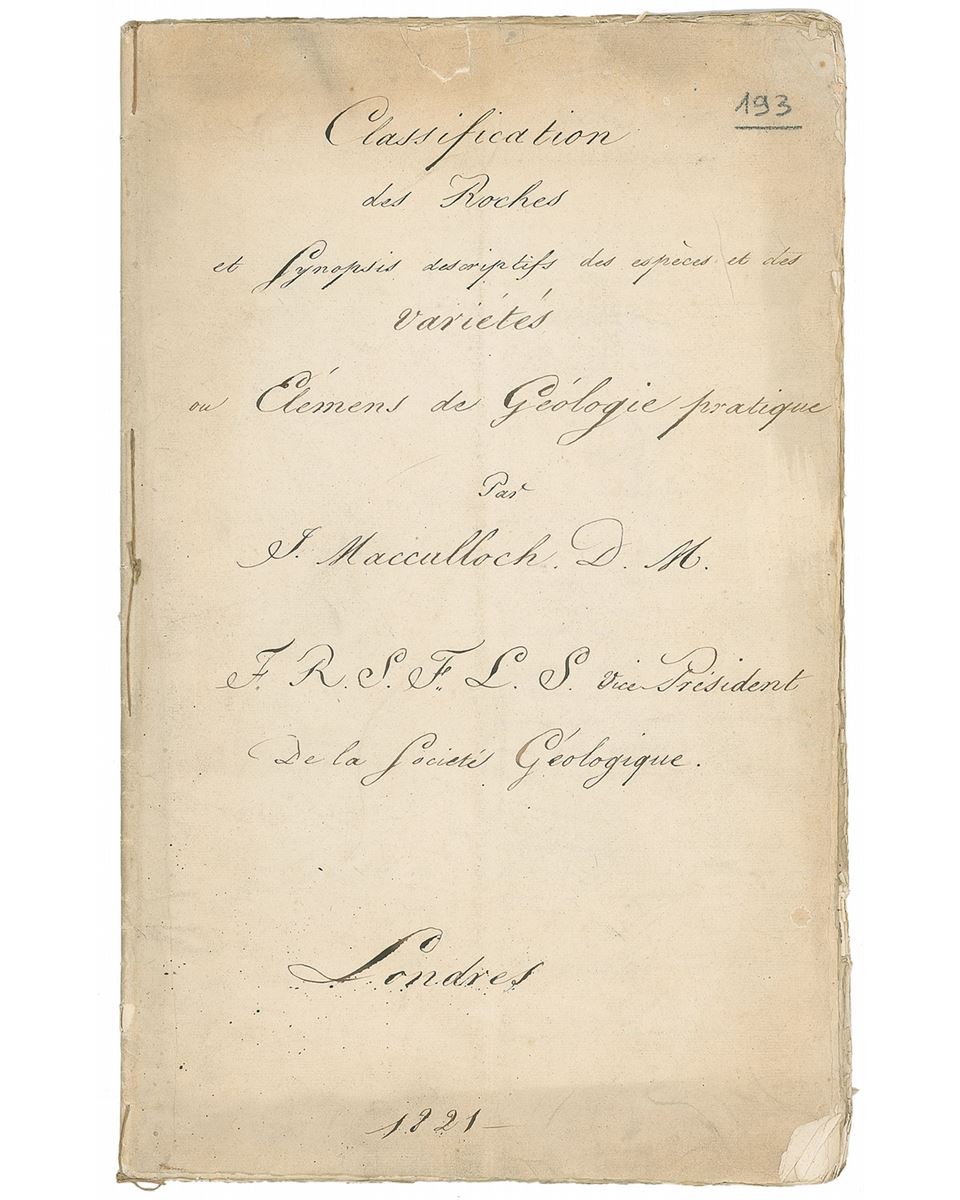 193
Classification
des Roches
et Synopsis descriptifs des espèces et des
variétés
ou Elémens de Géologie pratique
Par
J. Macculloch. D. M.
F. R. S. F. L. S. Vice-Président
De la Societé Géologique.
Londres
1821